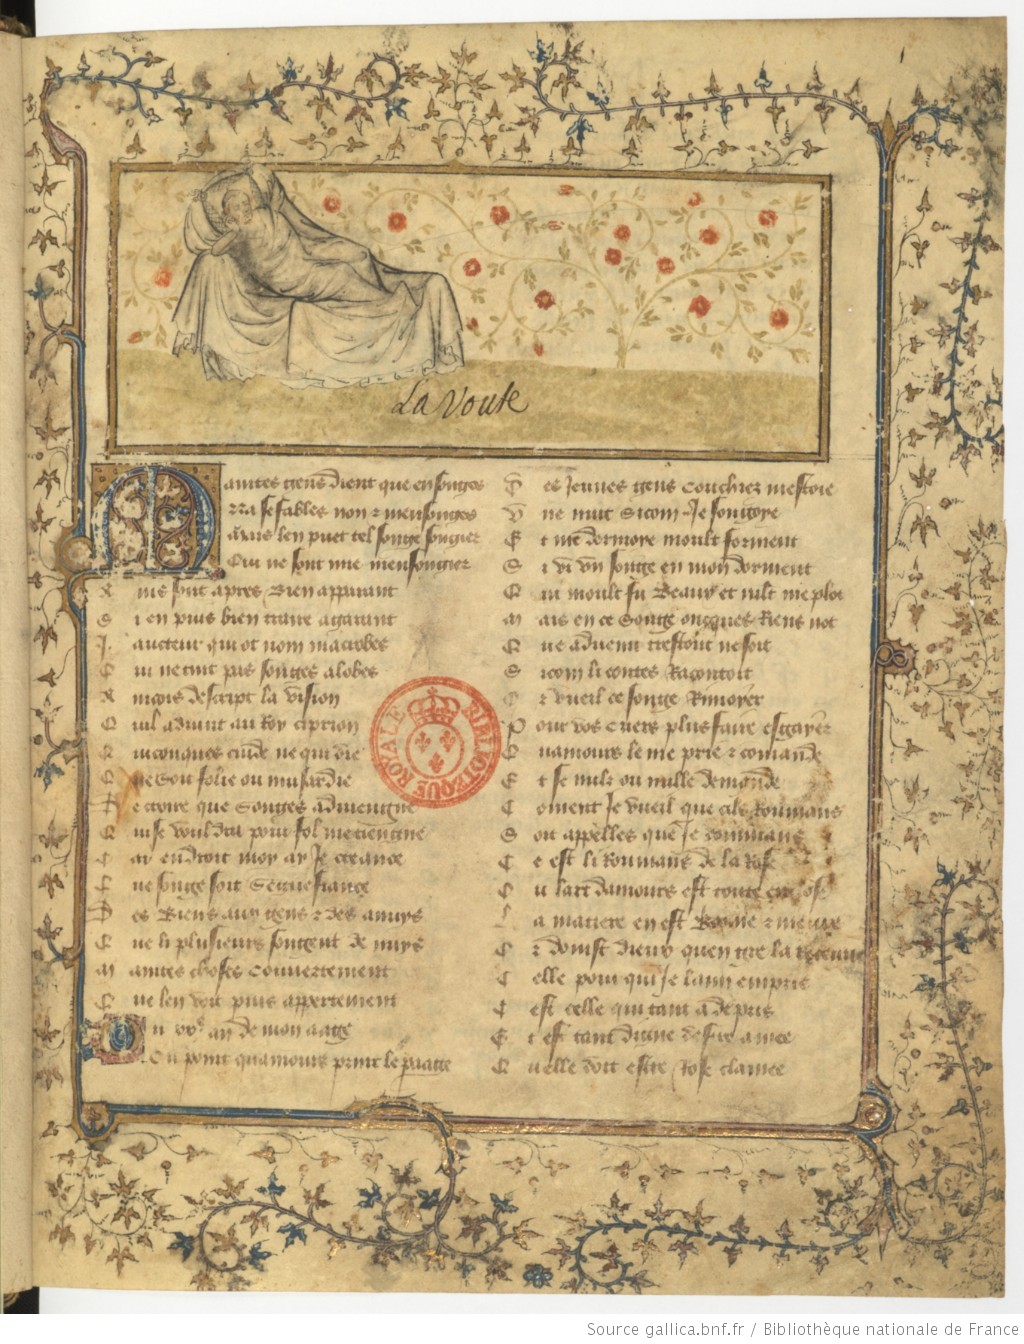 La Voute
Maintes gens dient que en songes
Na se fables non & mensonges
Mais len puet tel songe songier
Qui ne sont mie mensongier
Ains sont apres Bien apparant
Si en puis bien traire a garant
J. aucteur qui ot nom macrobes
Qui ne tint pas songes a lobes
Ancois descript la vision
Quil advint au Roy ciprion
Quiconques cuide ne qui die
Que Soit folie ou musardie
De croire que Songes adviengne
Qui se vouldra pour fol me tiengne
Car en droit moy ay Je creance
Que songe soit Segnefiance
Des Biens aux gens & des anuys
Que li plusieurs songent de nuys
Maintes choses Couvertement
Que len voit puis appertement
Ou vve an de mon aage
Ou point quamours print le paage
Des Jeunes gens Couchiez mestoie
Une nuit Sicom Je souloye
Et me dormoye moult forment
Si vi un songe en mon dorment
Qui moult fu Beaux et mlt me plot
Mais en ce Songe oncques Riens not
Que advenu trestout ne soit
Sicom li contes Racontoit
Or vueil ce songe Rimoyer
Pour vos cuers plus faire esgayer
Quamours le me prie & comande
Et se nulz ou nulle demande
Coment Je vueil que cils Roumans
Soit appelles que Je commans
Ce est li Roumans de la Rose
Ou lart damours est toute enclose
La matiere en est Bonne & neuve
Or doinst dieux quen gre la recoive
Celle pour qui Je lamy empris
Cest celle qui tant a de pris
Et est tant digne destre amee
Quelle doit estre Rose clamee
BIBLIOTHEQUE ROYALE
Source gallica.bnf.fr / Bibliothèque nationale de France